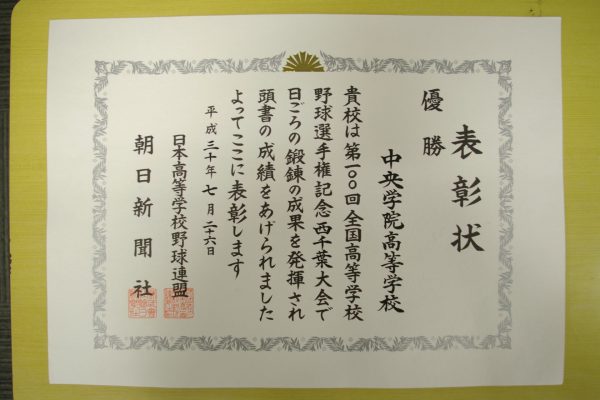 表彰状
優勝
中央学院高等学校
貴校は第一〇〇回全国高等学校
野球選手権記念西千葉大会で
日ごろの鍛錬の成果を発揮され
頭書の成績をあげられました
よってここに表彰します
平成三十年七月二十六日
日本高等学校野球連盟
朝日新聞社